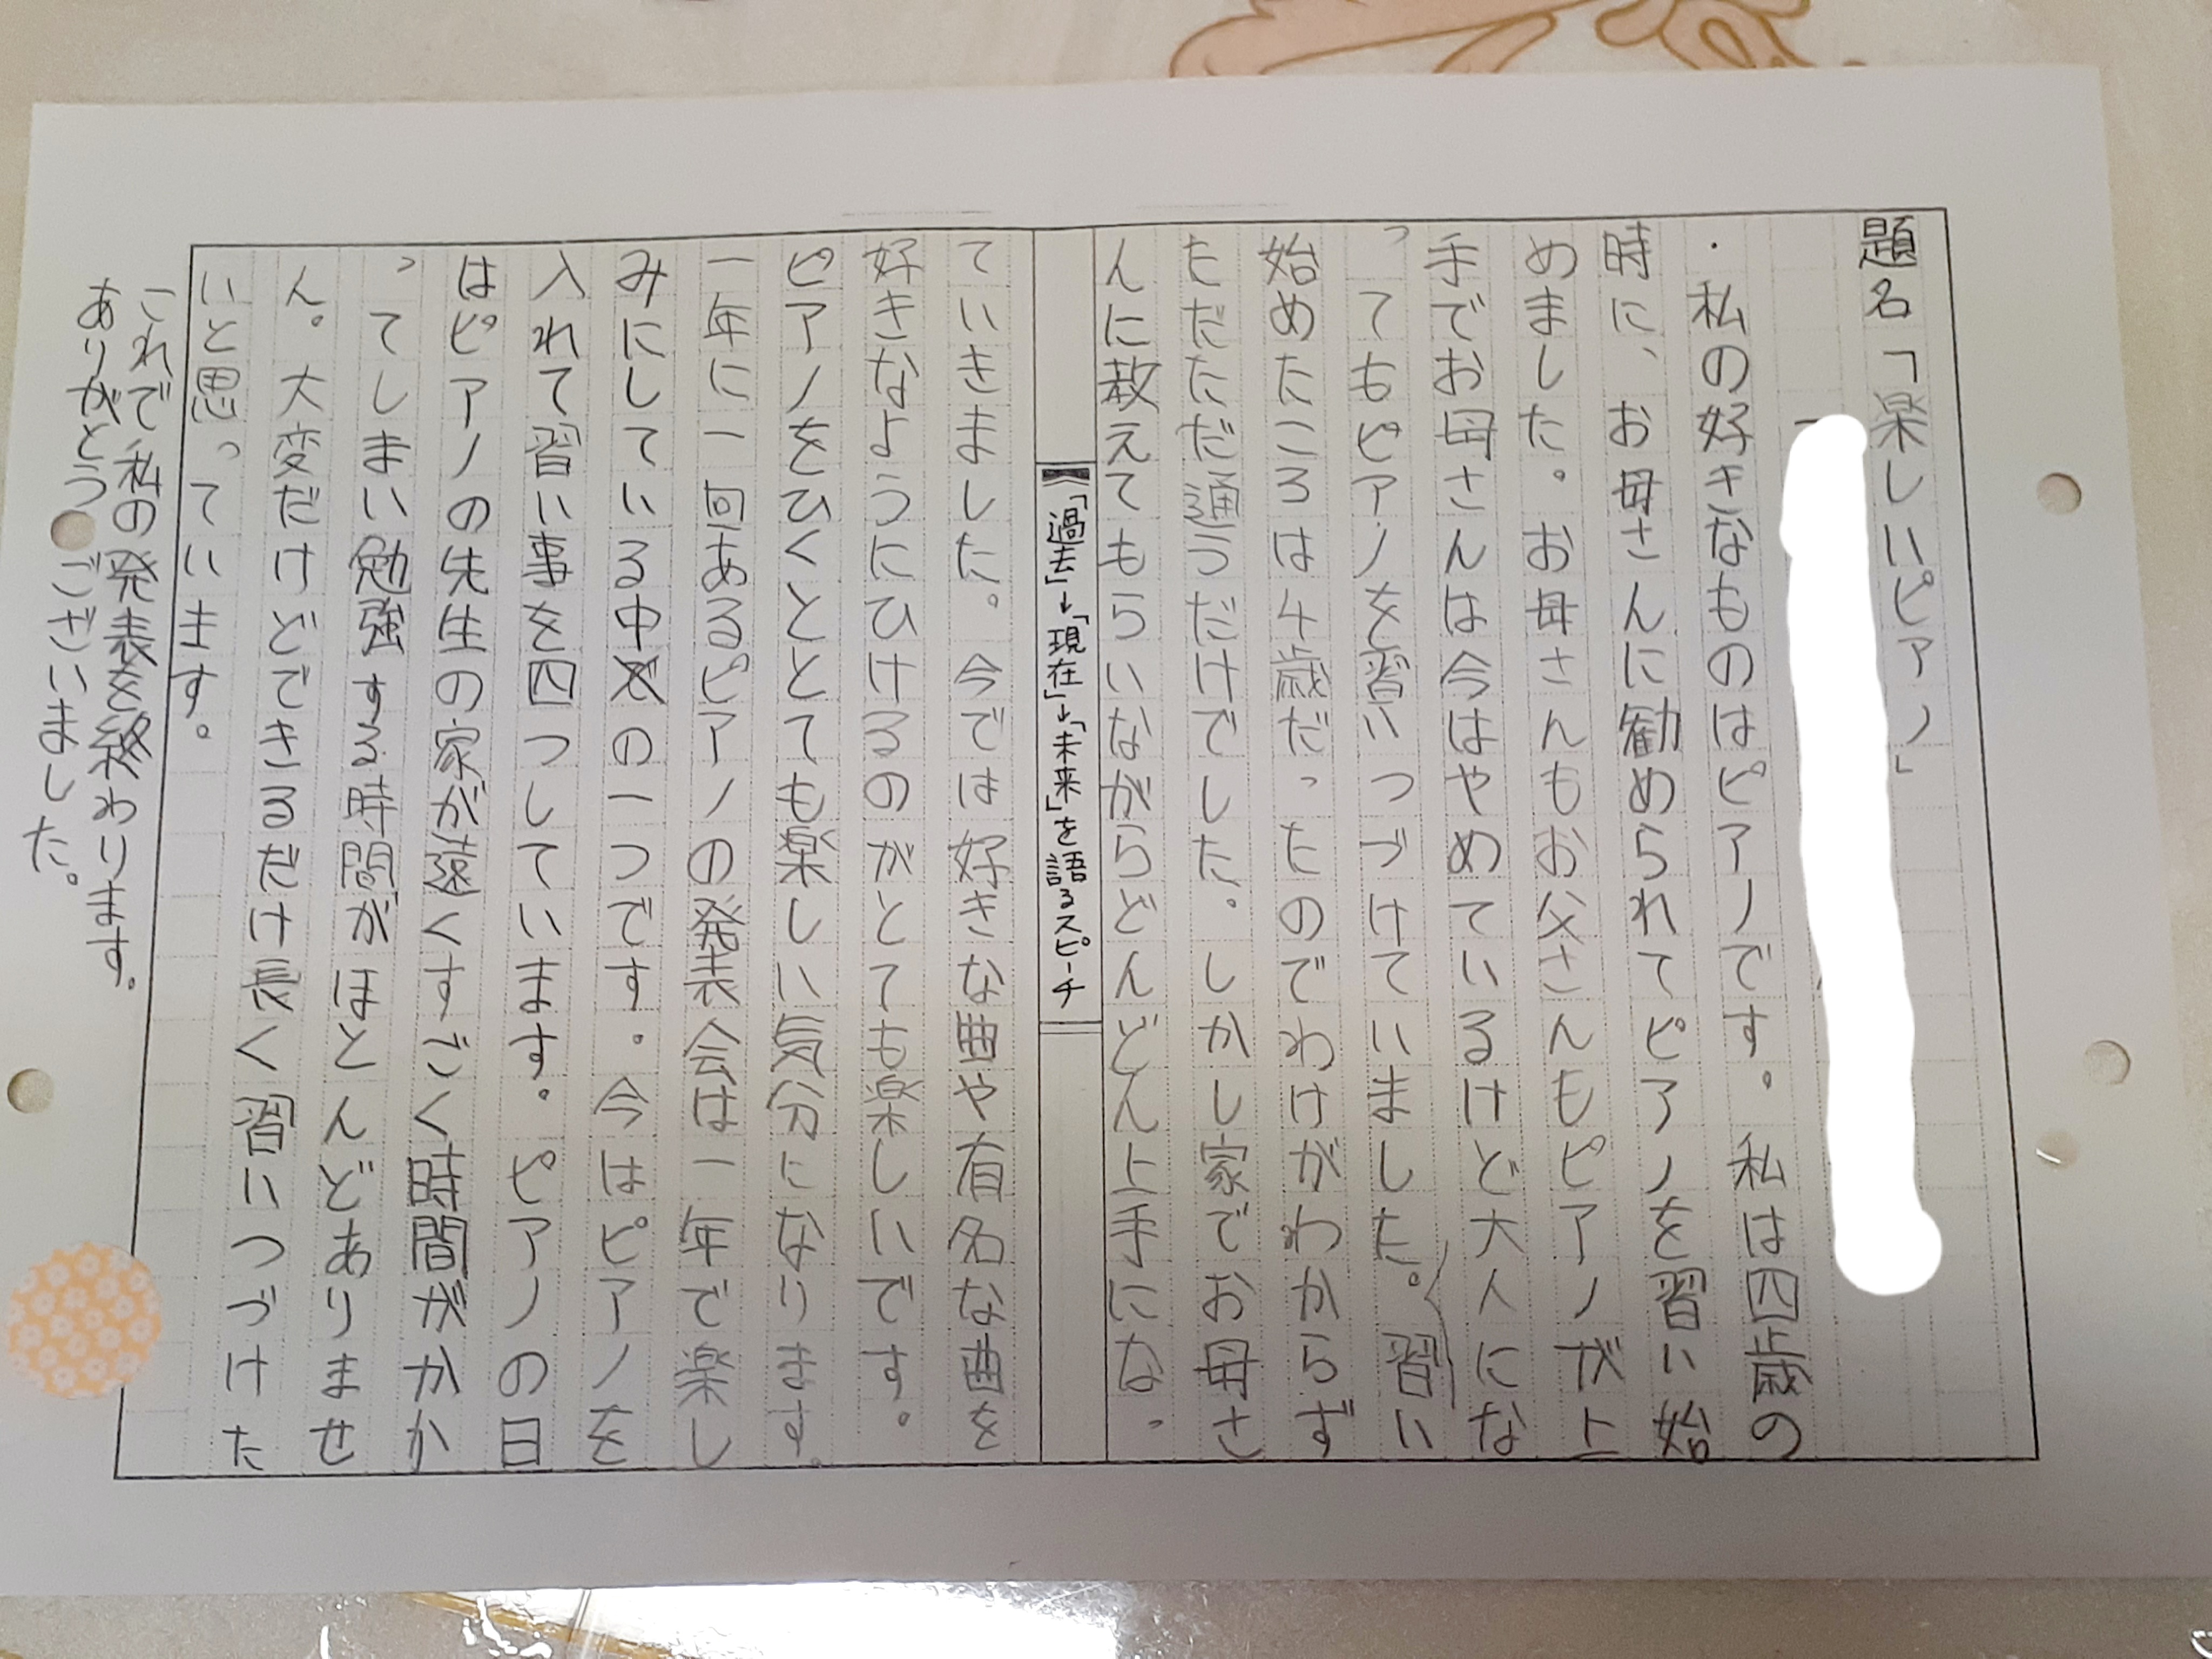 題名「楽しいピアノ」
・私の好きなものはピアノです。私は四歳の
時に、お母さんに勧められてピアノを習い始
めました。お母さんもお父さんもピアノが上
手でお母さんは今はやめているけど大人にな
ってもピアノを習いつづけていました。習い
始めたころは4歳だったのでわけがわからず
ただただ通うだけでした。しかし家でお母さ
んに教えてもらいながらどんどん上手になっ
《「過去」→「現在」→「未来」を語るスピーチ
ていきました。今では好きな曲や有名な曲を
好きなようにひけるのがとても楽しいです。
ピアノをひくととても楽しい気分になります。
一年に一回あるピアノの発表会は一年で楽し
みにしている中の一つです。今はピアノを
入れて習い事を四つしています。ピアノの日
はピアノの先生の家が遠くすごく時間がかか
ってしまい勉強する時間がほとんどありませ
ん。大変だけどできるだけ長く習いつづけた
いと思っています。
これで私の発表を終わります。
ありがとうございました。